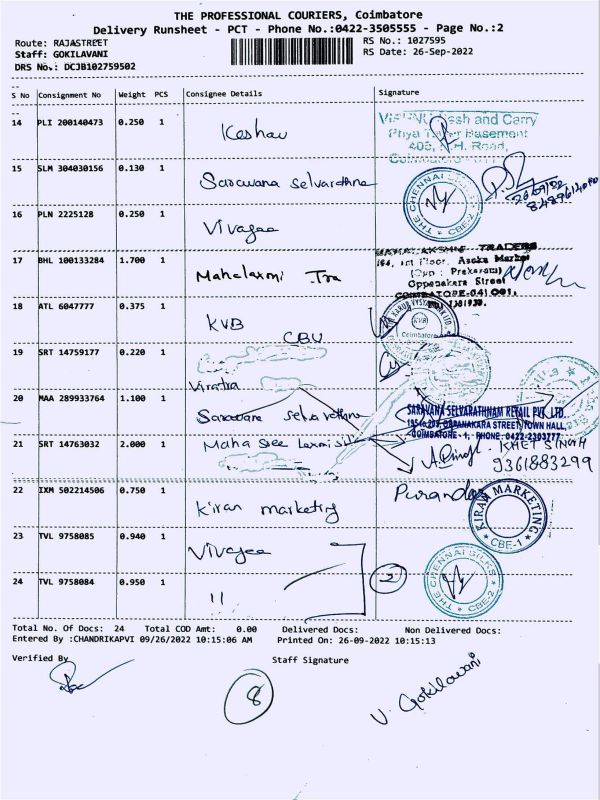 THE PROFESSIONAL COURIERS, Coimbatore
Delivery Runsheet - PCT - Phone No.:0422-3505555 - Page No.:2
Route: RAJASTREET RS No.: 1027595
Staff: GOKILAVANI RS Date: 26-Sep-2022
DRS No.: DCJB102759502
S No Consignment No Weight PCS Consignee Details Signature
14 PLI 200140473 0.250 1 Keshav
VISHNU Cash and Carry
Priya Tower Basement
406, N.H. Road,
Coimbatore
15 SLM 304030156 0.130 1 Saravana Selvarathna
THE CHENNAI SILKS CBE-2
26/09/22
16 PLN 2225128 0.250 1 Vivagaa
17 BHL 100133284 1.700 1 Mahalaxmi Tra
MAHALAKSHMI TRADERS
164, 1st Floor, Asoka Market
(Opp : Prakasam)
Oppanakara Street
COIMBATORE-641 001.
18 ATL 6047777 0.375 1 KVB
CBU
KARUR VYSYA BANK LTD.
KVB
Coimbatore
19 SRT 14759177 0.220 1
Viratra
20 MAA 289933764 1.100 1 Saravana selvarathna
SARAVANA SELVARATHNAM RETAIL PVT. LTD.
OPPANAKARA STREET, TOWN HALL,
COIMBATORE - 1, PHONE: 0422-2303777
21 SRT 14763032 2.000 1 Maha See Laxmi silk
KHET SINGH
9361883299
22 IXM 502214506 0.750 1 Kiran marketing
KIRAN MARKETING CBE-1
23 TVL 9758085 0.940 1 Vivagaa
2
24 TVL 9758084 0.950 1 11
THE CHENNAI SILKS CBE-2
Total No. Of Docs: 24 Total COD Amt: 0.00 Delivered Docs: Non Delivered Docs:
Entered By :CHANDRIKAPVI 09/26/2022 10:15:06 AM Printed On: 26-09-2022 10:15:13
Verified By Staff Signature
8
V. Gokilavani